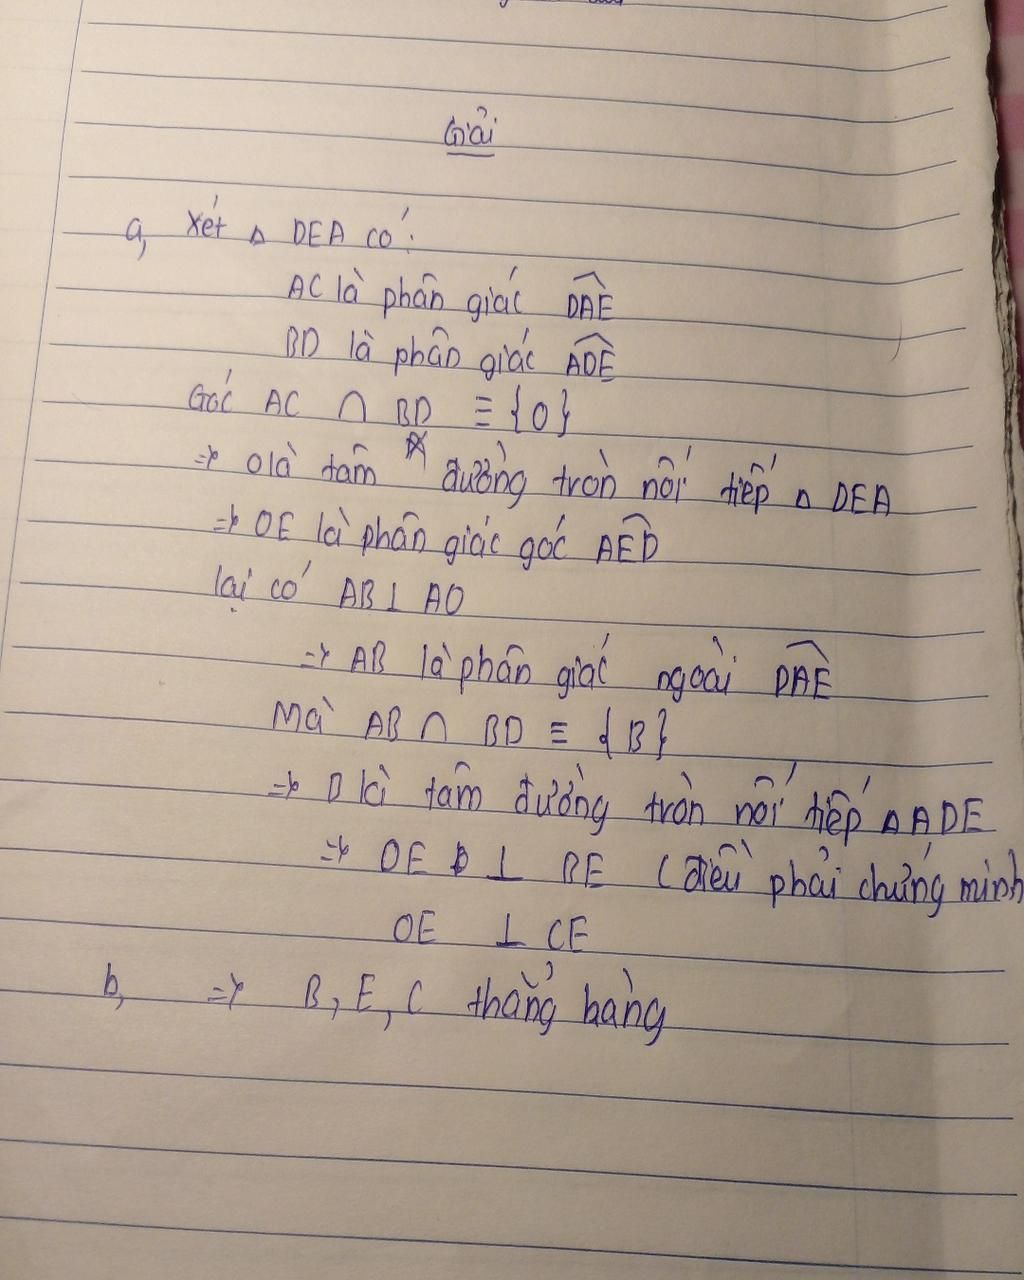 Giải
a, Xét Δ DEA có:
AC là phân giác D̂AE
BD là phân giác ÂDE
Góc AC ∩ BD ≡ {O}
=> O là tâm đường tròn nối tiếp Δ DEA
=> OE là phân giác góc AÊD
lại có AB ⊥ AO
=> AB là phân giác ngoài DÂE
Mà AB ∩ BD ≡ {B}
=> D là tâm đường tròn nối tiếp Δ ADE
=> OE ⊥ BE (điều phải chứng minh
OE ⊥ CE
b, => B, E, C thẳng hàng